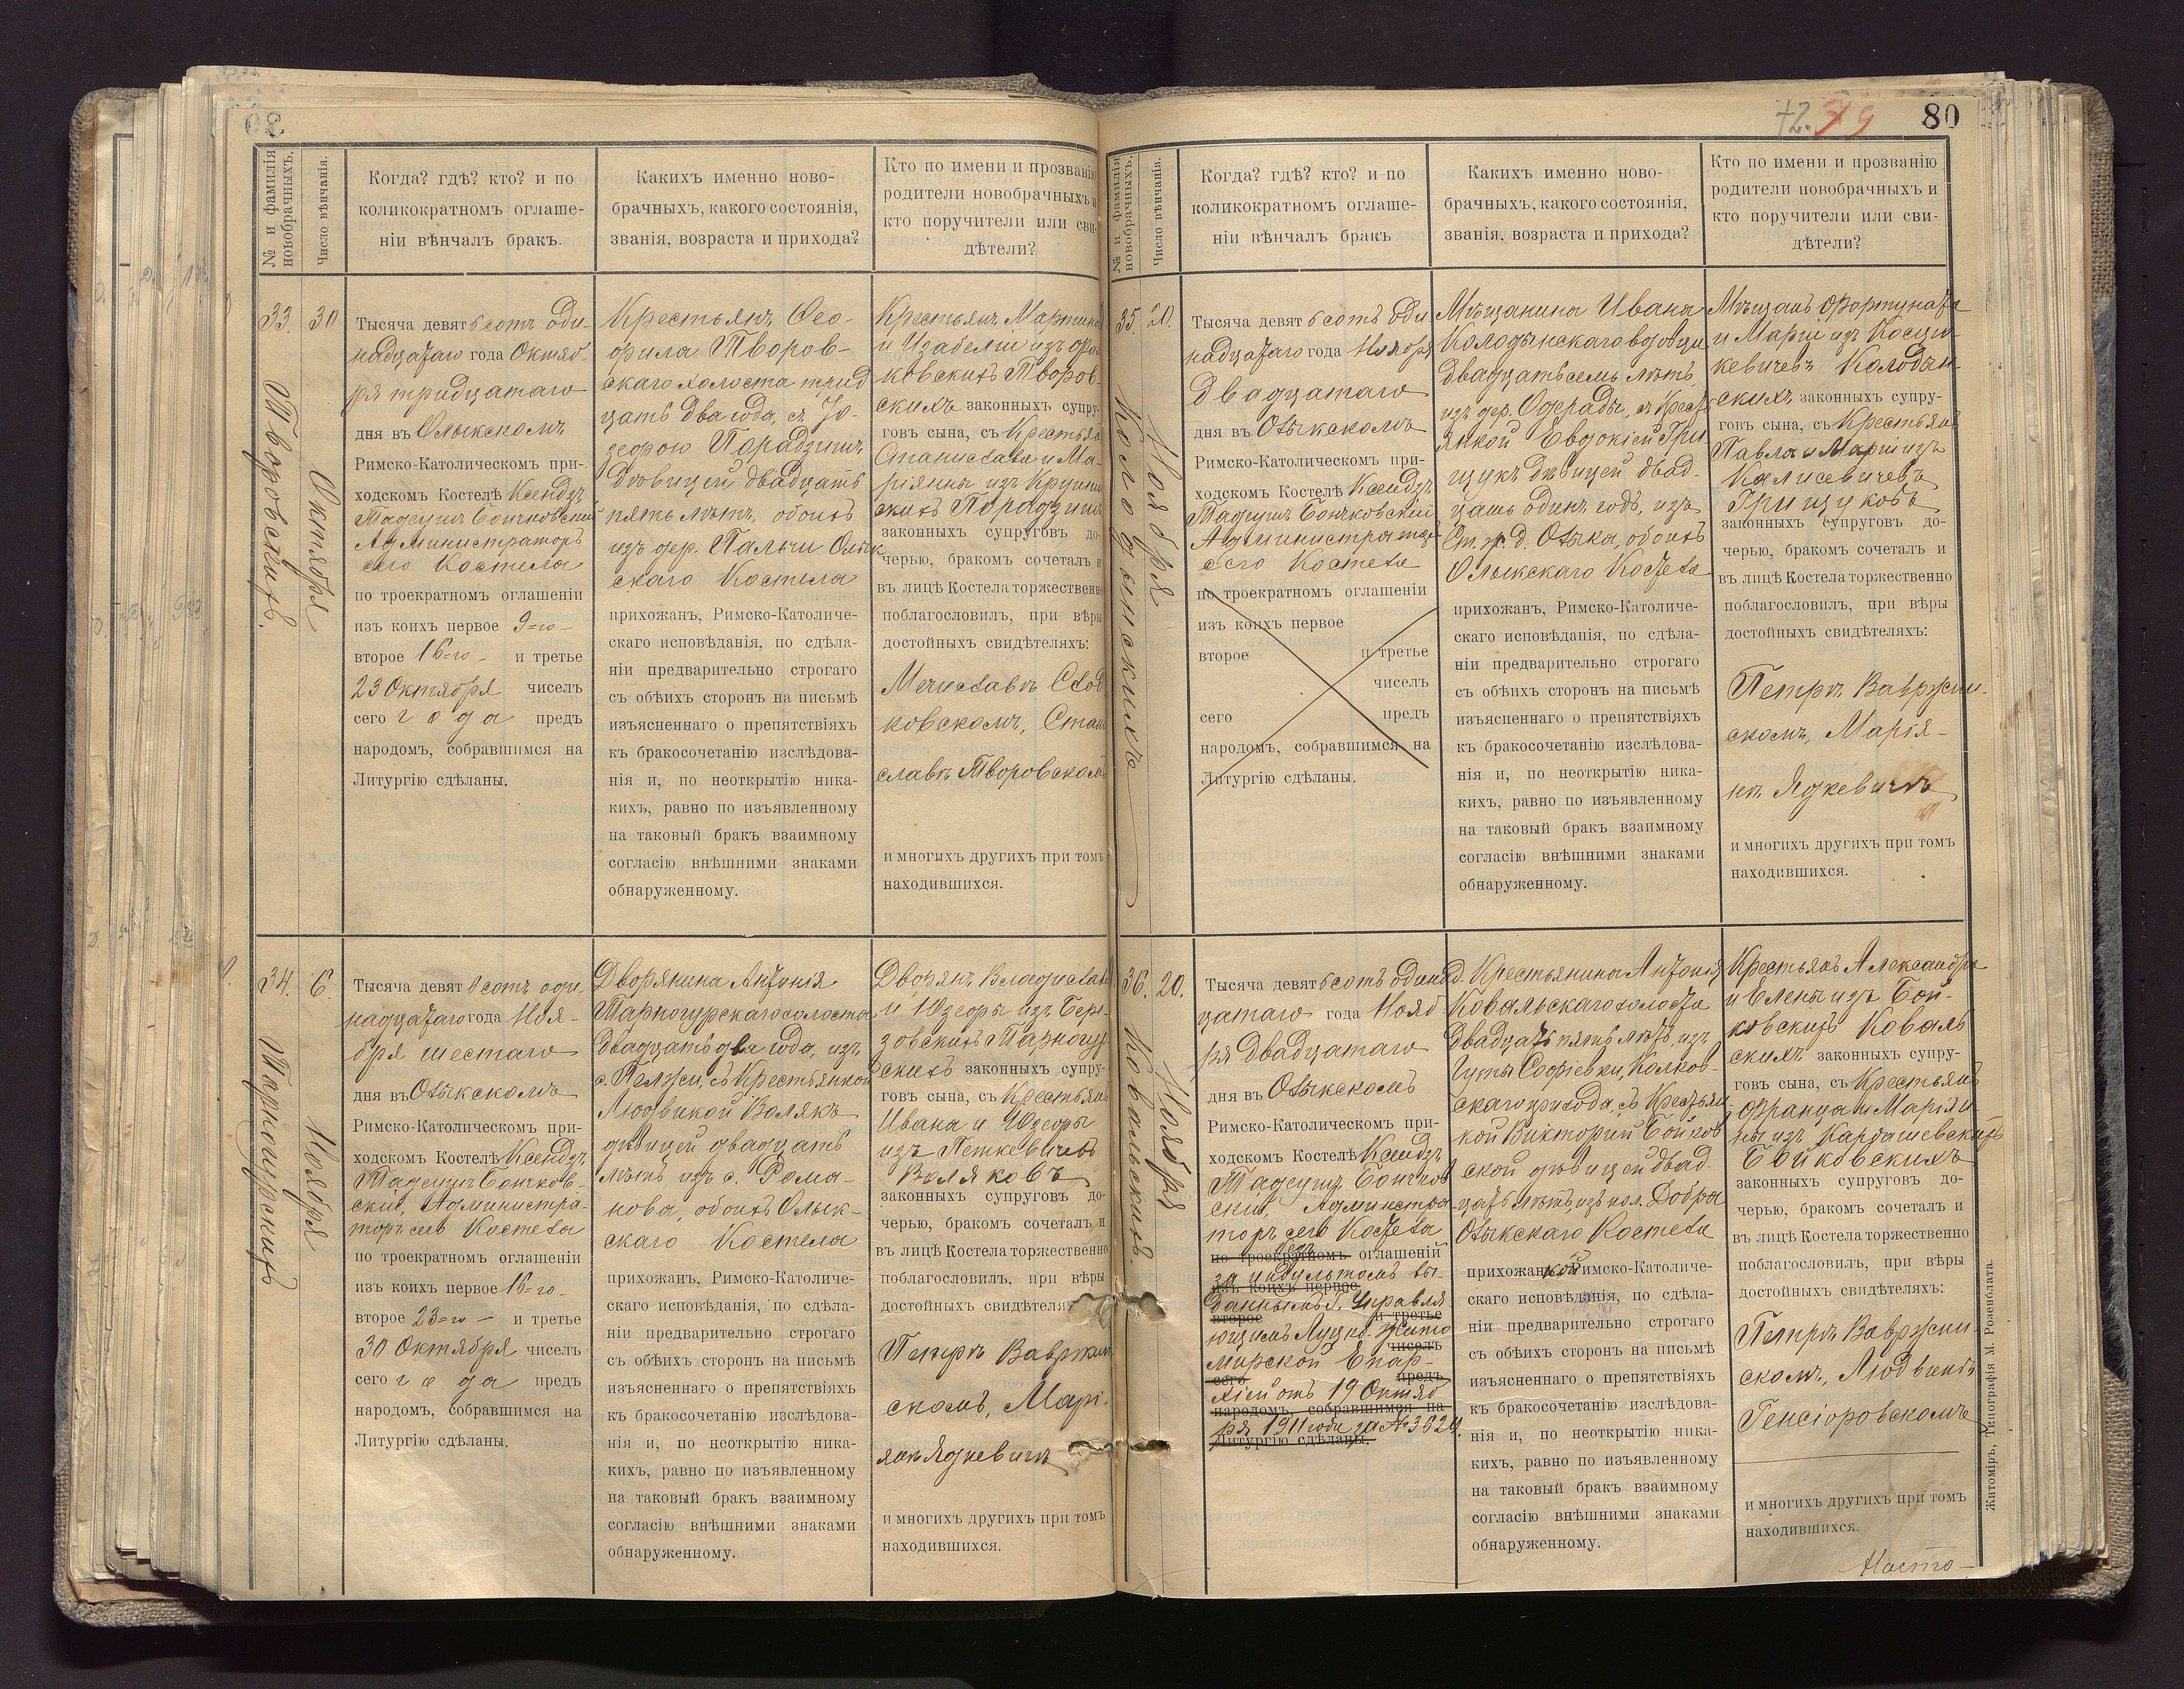 № и фамилія
новобрачныхъ.
Число вѣнчанія.
Когда? гдѣ? кто? и по
коликократномъ оглаше-
ніи вѣнчалъ бракъ.
Какихъ именно ново-
брачныхъ, какого состоянія,
званія, возраста и прихода?
Кто по имени и прозванію
родители новобрачныхъ и
кто поручители или сви-
дѣтели?
33.
Творовскихъ.
30
Октября
Тысяча девятьсотъ оди-
надцатаго года Октяб-
ря тридцатаго
дня въ Олыкскомъ
Римско-Католическомъ при-
ходскомъ Костелѣ Ксендзъ
Тадеушъ Бончковскій
Администраторъ
сего Костела
по троекратномъ оглашеніи
изъ коихъ первое 9=го
второе 16=го и третье
23 Октября чиселъ
сего года предъ
народомъ, собравшимся на
Литургію сдѣланы.
Крестьянъ Ѳео-
фила Творов-
скаго холоста трид
цать два года, съ Іо-
зефою Парадзинъ
дѣвицей двадцать
пять лѣтъ, обоихъ
изъ дер. Пальчи Олык
скаго Костела
прихожанъ, Римско-Католиче-
скаго исповѣданія, по сдѣла-
ніи предварительно строгаго
съ обѣихъ сторонъ на письмѣ
изъясненнаго о препятствіяхъ
къ бракосочетанію изслѣдова-
нія и, по неоткрытію ника-
кихъ, равно по изъявленному
на таковый бракъ взаимному
согласію внѣшними знаками
обнаруженному.
Крестьянъ Мартина
и Изабелли изъ
ковскихъ Творов-
скихъ законныхъ супру-
говъ сына, съ Крестьянъ
Станислава и Ма-
ріянны изъ
скихъ Парадзинъ
законныхъ супруговъ до-
черью, бракомъ сочеталъ и
въ лицѣ Костела торжественно
поблагословилъ, при вѣры
достойныхъ свидѣтеляхъ:
Мечиславѣ
ковскомъ, Стани
славѣ Творовскомъ
и многихъ другихъ при томъ
находившихся.
34.
Тарногурскихъ
6.
Ноября
Тысяча девятьсотъ оди-
надцатаго года Ноя-
бря шестаго
дня въ Олыкскомъ
Римско-Католическомъ при-
ходскомъ Костелѣ Ксендзъ
Тадеушъ Бончков-
скій, Администра-
торъ сего Костела
по троекратномъ оглашеніи
изъ коихъ первое 16=го
второе 23=го и третье
30 Октября чиселъ
сего года предъ
народомъ, собравшимся на
Литургію сдѣланы.
Дворянина Антонія
Тарногурскаго холоста
двадцать два года, изъ
с. Пелжи, съ Крестьянкой
Людвикой Волякъ
дѣвицей двадцать
лѣтъ изъ с. Рома-
нова, обоихъ Олык-
скаго Костела
прихожанъ, Римско-Католиче-
скаго исповѣданія, по сдѣла-
ніи предварительно строгаго
съ обѣихъ сторонъ на письмѣ
изъясненнаго о препятствіяхъ
къ бракосочетанію изслѣдова-
нія и, по неоткрытію ника-
кихъ, равно по изъявленному
на таковый бракъ взаимному
согласію внѣшними знаками
обнаруженному.
Дворянъ Владислава
и Юзефы изъ Бере-
зовскихъ Тарногур-
скихъ законныхъ супру-
говъ сына, съ Крестьянъ
Ивана и Юзефы
изъ Петкевичевъ
Воляковъ
законныхъ супруговъ до-
черью, бракомъ сочеталъ и
въ лицѣ Костела торжественно
поблагословилъ, при вѣры
достойныхъ свидѣтеляхъ
Петрѣ Вавржин
скомъ, Марі-
янѣ Яцкевичѣ
и многихъ другихъ при томъ
находившихся.
80
№ и фамилія
новобрачныхъ.
Число вѣнчанія.
Когда? гдѣ? кто? и по
коликократномъ оглаше-
ніи вѣнчалъ бракъ
Какихъ именно ново-
брачныхъ, какого состоянія,
званія, возраста и прихода?
Кто по имени и прозванію
родители новобрачныхъ и
кто поручители или сви-
дѣтели?
35.
Колодынскихъ
20.
Ноября
Тысяча девятьсотъ оди
надцатаго года Ноября
двадцатаго
дня въ Олыкскомъ
Римско-Католическомъ при-
ходскомъ Костелѣ Ксендзъ
Тадеушъ Бончковскій
Администраторъ
сего Костела
по троекратномъ оглашеніи
изъ коихъ первое
второе и третье
чиселъ
сего предъ
народомъ, собравшимся на
Литургію сдѣланы.
Мѣщанина Ивана
Колодынскаго вдовца
двадцать семь лѣтъ,
изъ дер. Одерады, съ Крест
янкой Евдокіей Гри
щукъ дѣвицей двад-
цать одинъ годъ, изъ
Ст. ж. д. Олыка, обоихъ
Олыкскаго Костела
прихожанъ, Римско-Католиче-
скаго исповѣданія, по сдѣла-
ніи предварительно строгаго
съ обѣихъ сторонъ на письмѣ
изъясненнаго о препятствіяхъ
къ бракосочетанію изслѣдова-
нія и, по неоткрытію ника-
кихъ, равно по изъявленному
на таковый бракъ взаимному
согласію внѣшними знаками
обнаруженному.
Мѣщанъ Фортуната
и Маріи изъ Косцю
кевичевъ Колодын-
скихъ законныхъ супру-
говъ сына, съ Крестьянъ
Павла и Маріи изъ
Калисевичевъ
Грищуковъ
законныхъ супруговъ до-
черью, бракомъ сочеталъ и
въ лицѣ Костела торжественно
поблагословилъ, при вѣры
достойныхъ свидѣтеляхъ:
Петрѣ Вавржин-
скомъ, Марія-
нѣ Яцкевичѣ
и многихъ другихъ при томъ
находившихся.
36.
Ковальскихъ.
20.
Ноября
Тысяча девятьсотъ одинад-
цатаго года Нояб
ря двадцатаго
дня въ Олыкскомъ
Римско-Католическомъ при-
ходскомъ Костелѣ Ксендзъ
Тадеушъ Бончков
скій, Администра
торъ сего Костела
по троекратномъ безъ оглашеній
за индультомъ вы-
изъ коихъ первое
даннымъ Управля
второе и третье
ющимъ Луцко-Жито
чиселъ
мирской Епар-
сего предъ
хіей отъ 19 Октяб
народомъ, собравшимся на
ря 1911 года за № 3629.
Литургію сдѣланы.
Крестьянина Антонія
Ковальскаго холоста
двадцать пять лѣтъ, изъ
Гуты Софіевки, Колков-
скаго прихода, съ Крестьян-
кой Викторіей Бойков
ской дѣвицей двад-
цать лѣтъ, изъ кол. Добра
Олыкскаго Костела
прихожанкой Римско-Католиче-
скаго исповѣданія, по сдѣла-
ніи предварительно строгаго
съ обѣихъ сторонъ на письмѣ
изъясненнаго о препятствіяхъ
къ бракосочетанію изслѣдова-
нія и, по неоткрытію ника-
кихъ, равно по изъявленному
на таковый бракъ взаимному
согласію внѣшними знаками
обнаруженному.
Крестьянъ Александра
и Елены изъ Бой-
ковскихъ Коваль
скихъ законныхъ супру-
говъ сына, съ Крестьянъ
Франца и Маріян
ны изъ Карташевскихъ
Бойковскихъ
законныхъ супруговъ до-
черью, бракомъ сочеталъ и
въ лицѣ Костела торжественно
поблагословилъ, при вѣры
достойныхъ свидѣтеляхъ:
Петрѣ Вавржин-
скомъ, Людвикѣ
Генсіоровскомъ
и многихъ другихъ при томъ
находившихся.
Насто-
Житоміръ, Типографія М. Розенблата.